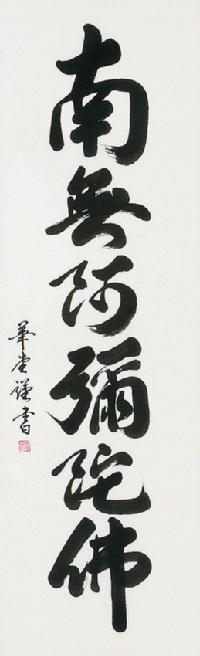 南無阿彌陀佛
華堂謹書